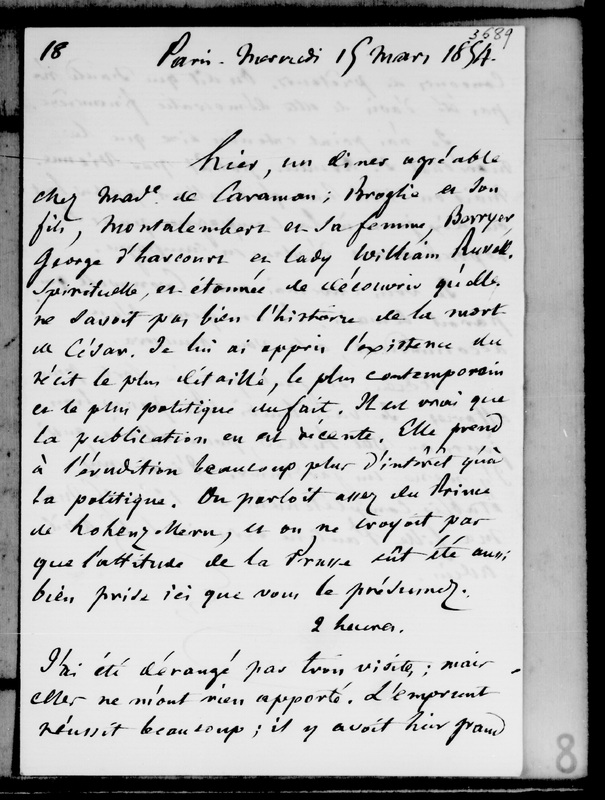 18
3689
Paris - Mercredi 15 Mars 1854.
Hier, un diner agréable
chez Made de Caraman ; Broglie et son
fils, Montalembert et sa femme, Berryer,
George d'harcourt et lady William Russell,
Spirituelle, et étonnée de découvrir qu'elle
ne savoit pas bien l'histoire de la mort
de César. Je lui ai appris l'existence du
récit le plus détaillé, le plus contemporain
et le plus politique du fait. Il est vrai que
la publication en est récente. Elle prend
à l'érudition beaucoup plus d'intérêt qu'à
la politique. On parloit assez du Prince
de hohenzollern, et on ne croyoit pas
que l'attitude de la Prusse eût été aussi
bien prise ici que vous le présumez.
2 heures.
J'ai été dérangé par trois visites ; mais
elles ne m'ont rien apporté. L'emprunt
réussit beaucoup ; il y avoit hier grand
8